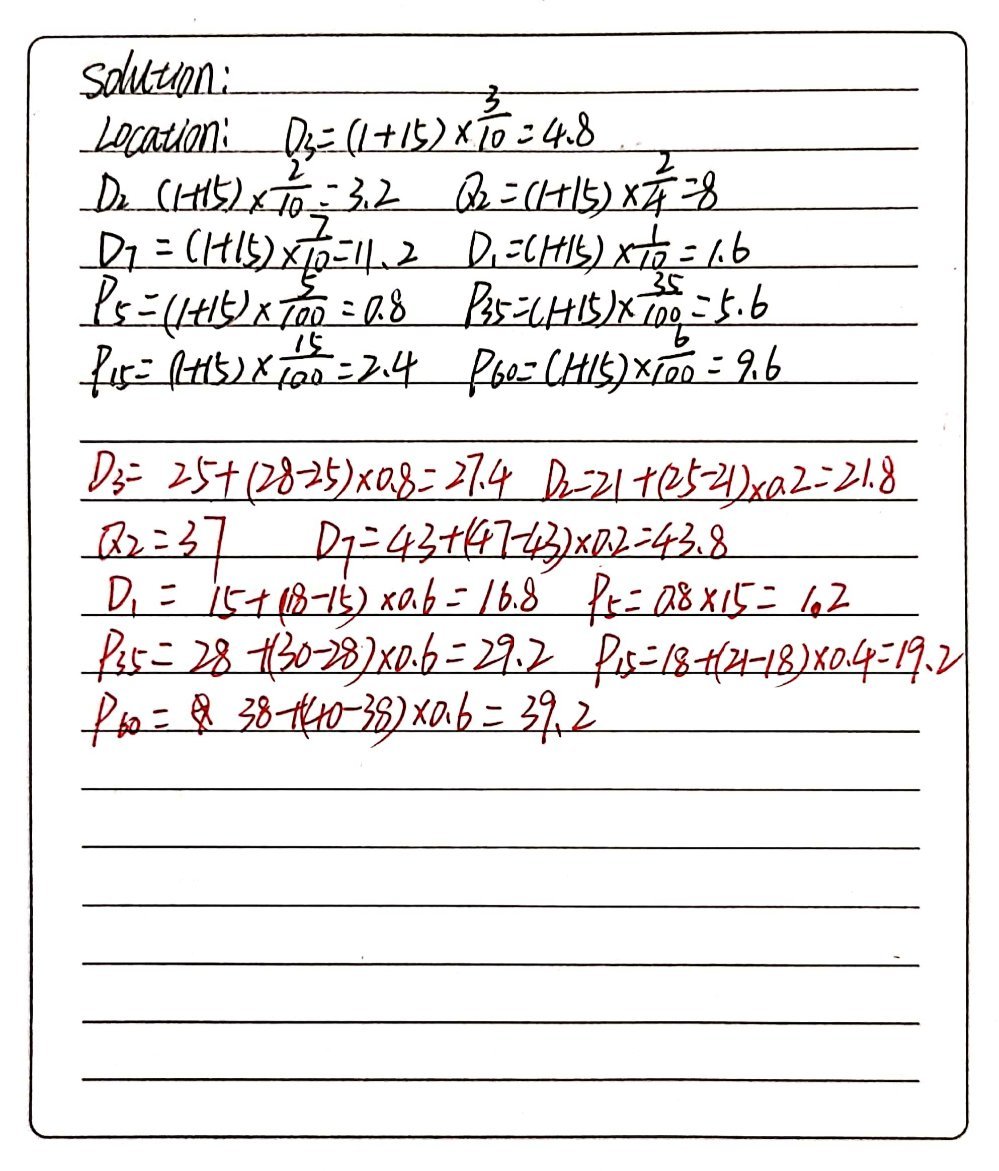 Solution:
Location: D3=(1+15)×3/10=4.8
D2 (1+15)×2/10=3.2 Q2=(1+15)×2/4=8
D7=(1+15)×7/10=11.2 D1=(1+15)×1/10=1.6
P5=(1+15)×5/100=0.8 P35=(1+15)×35/100=5.6
P15=(1+15)×15/100=2.4 P60=(1+15)×6/100=9.6
D3= 25+(28-25)×0.8=27.4 D2=21+(25-21)×0.2=21.8
Q2=37 D7=43+(47-43)×0.2=43.8
D1= 15+(18-15)×0.6=16.8 P5=0.8×15=1.2
P35=28+(30-28)×0.6=29.2 P15=18+(21-18)×0.4=19.2
P60= 38+(40-38)×0.6=39.2